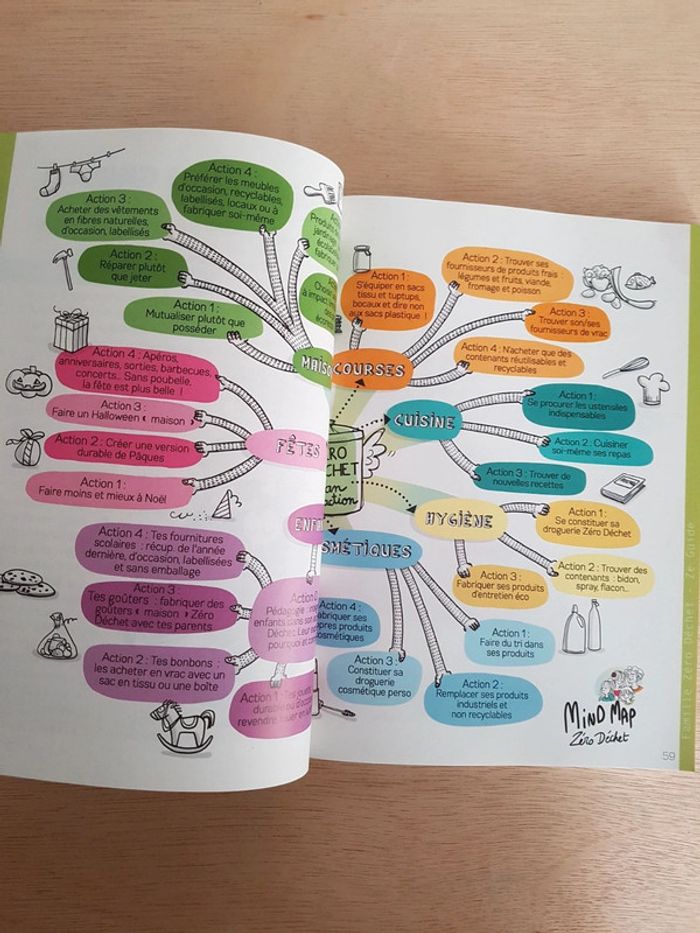 Action 4 :
Préférer les meubles
d'occasion, recyclables,
labellisés, locaux ou à
fabriquer soi-même
Action 3 :
Acheter des vêtements
en fibres naturelles,
d'occasion, labellisés
Action 2 :
Réparer plutôt
que jeter
Action 1 :
Mutualiser plutôt que
posséder
MAISO
Action 4 : Apéros,
anniversaires, sorties, barbecues,
concerts... Sans poubelle,
la fête est plus belle !
Action 3 :
Faire un Halloween « maison »
Action 2 : Créer une version
durable de Pâques
Action 1 :
Faire moins et mieux à Noël
FÊTES
ENFA
Action 4 : Tes fournitures
scolaires : récup. de l'année
dernière, d'occasion, labellisées
et sans emballage
Action 3 :
Tes goûters : fabriquer des
goûters « maison » Zéro
Déchet avec tes parents
Action 2 : Tes bonbons :
les acheter en vrac avec un
sac en tissu ou une boîte
Pédagogie :
enfants dans
Déchet. Leur
pourquoi et
Action 1 : Tes
durable ou d'occ
revendre
COURSES
Action 1 :
S'équiper en sacs
tissu et tuptups,
bocaux et dire non
aux sacs plastique !
Action 2 : Trouver ses
fournisseurs de produits frais :
légumes et fruits, viande,
fromage et poisson
Action 3 :
Trouver son/ses
fournisseurs de vrac
Action 4 : N'acheter que des
contenants réutilisables et
recyclables
CUISINE
Action 1 :
Se procurer les ustensiles
indispensables
Action 2 : Cuisiner
soi-même ses repas
Action 3 : Trouver de
nouvelles recettes
HYGIÈNE
Action 1 :
Se constituer sa
droguerie Zéro Déchet
Action 2 : Trouver des
contenants : bidon,
spray, flacon...
Action 3 :
Fabriquer ses produits
d'entretien éco
SMÉTIQUES
Action 1 :
Faire du tri dans
ses produits
Action 2 :
Remplacer ses produits
industriels et
non recyclables
Action 3 :
Constituer sa
droguerie
cosmétique perso
Action 4 :
abriquer ses
opres produits
osmétiques
MIND MAP
Zéro Déchet
59
Famille Zéro Déchet